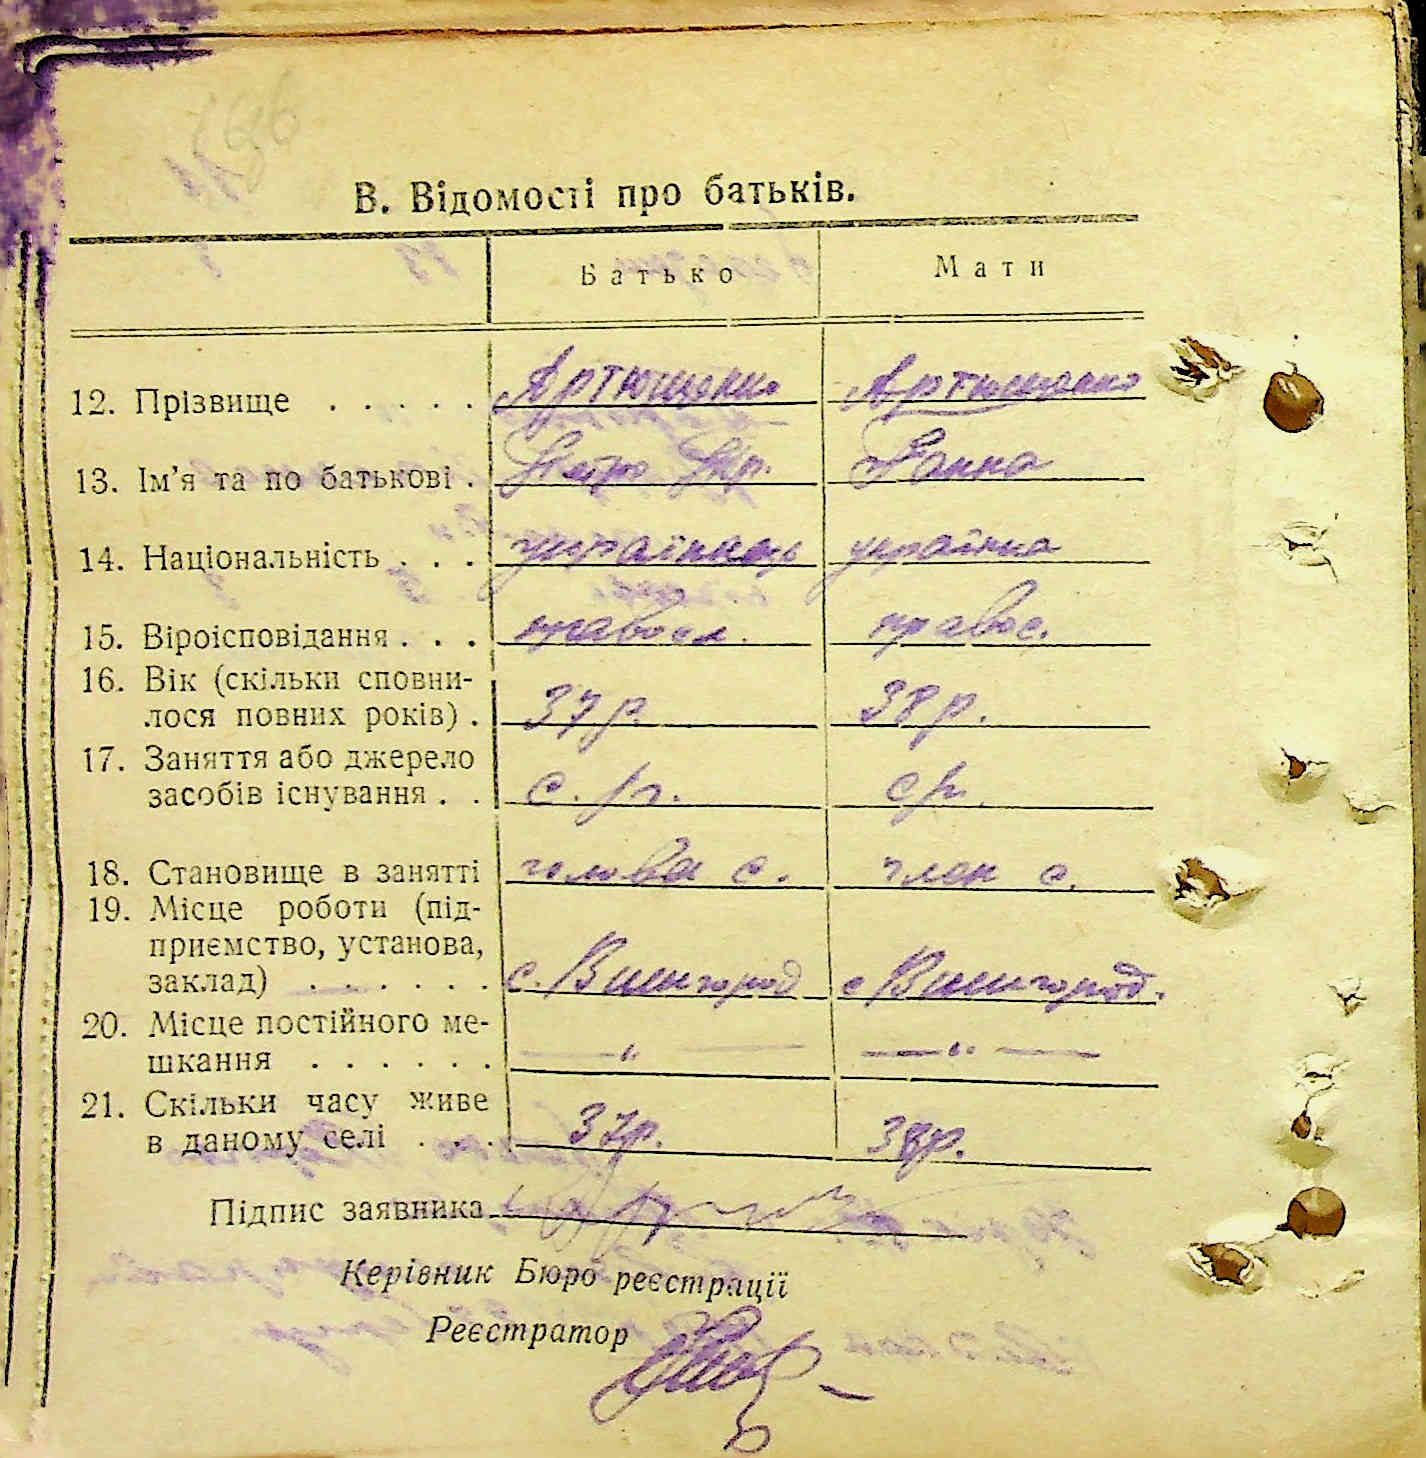 В. Відомості про батьків.
Батько Мати
12. Прізвище . . . . . Артющенко Артющенко
13. Ім'я та по батькові . Петро Ганна
14. Національність . . . українець українка
15. Віроісповідання . . . правосл. правос.
16. Вік (скільки сповни-
лося повних років) . 37 р. 38 р.
17. Заняття або джерело
засобів існування . . с. г. с г.
18. Становище в занятті голова с. член с.
19. Місце роботи (під-
приємство, установа,
заклад) . . . . . . с. Вишгород с Вишгород.
20. Місце постійного ме-
шкання . . . . . . — „ — — „ —
21. Скільки часу живе
в даному селі . . . 37р. 38р.
Підпис заявника
Керівник Бюро реєстрації
Реєстратор